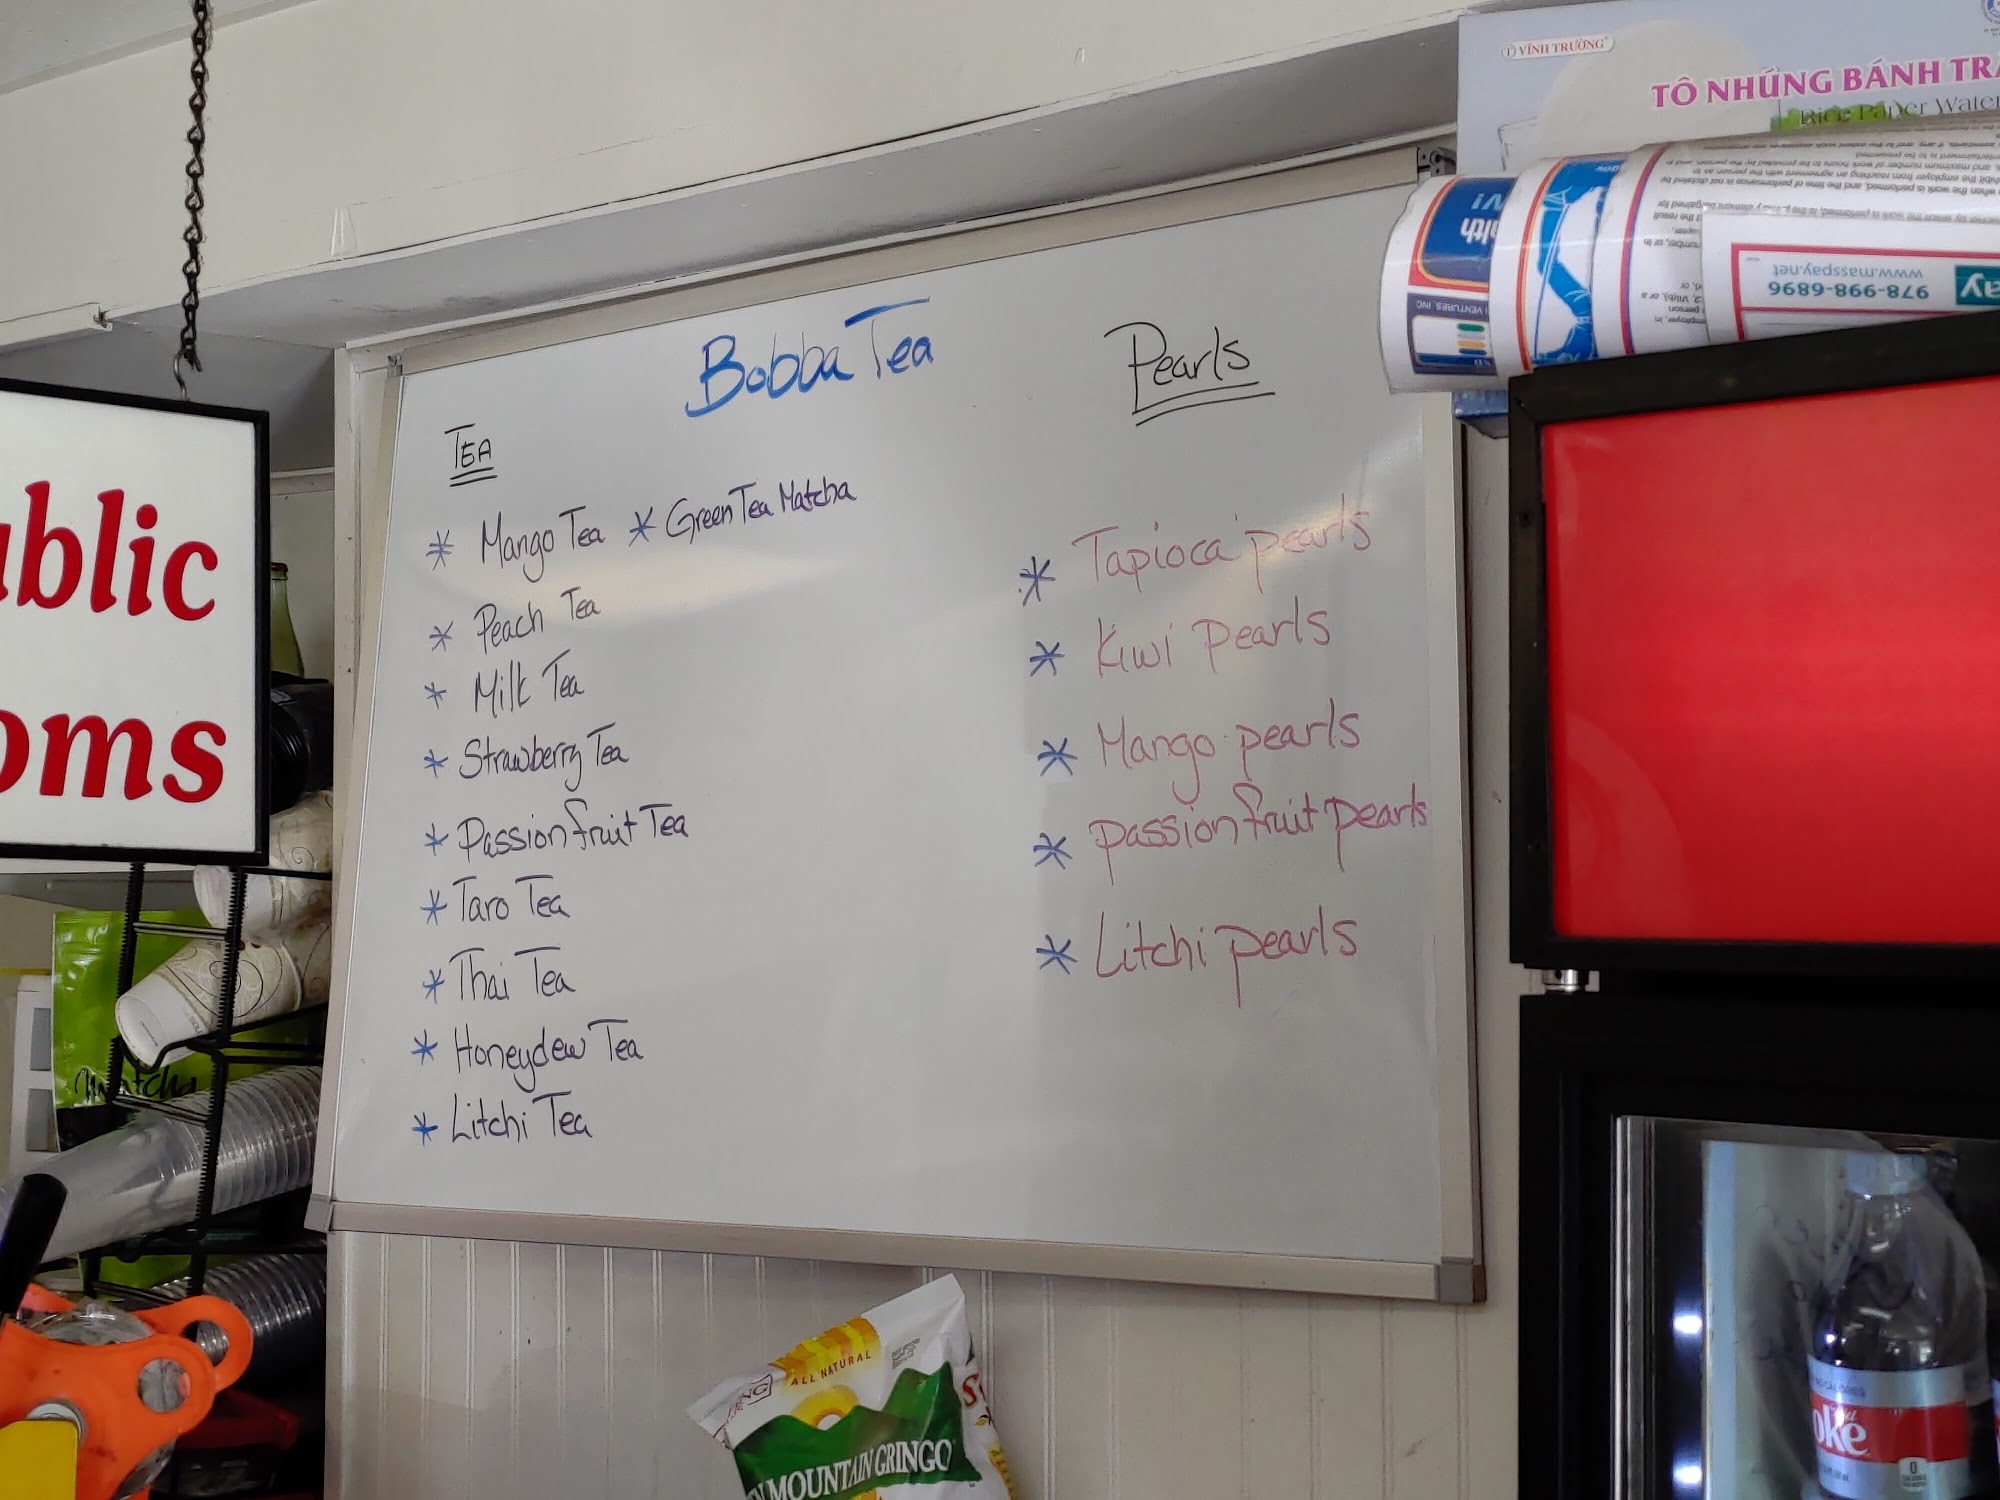 VĨNH TRƯỜNG
TÔ NHÚNG BÁNH TRÁ
Rice Paper Water
978-998-6896
www.masspay.net
Bobba Tea
Pearls
TEA
* Mango Tea * Green Tea Matcha
* Peach Tea
* Milk Tea
* Strawberry Tea
* Passion fruit Tea
* Taro Tea
* Thai Tea
* Honeydew Tea
* Litchi Tea
* Tapioca pearls
* Kiwi pearls
* Mango pearls
* passion fruit pearls
* Litchi pearls
ublic
oms
matcha
ALL NATURAL
MOUNTAIN GRINGO
oke